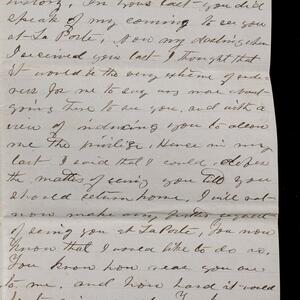 history. In your last you did
speak of my coming to see you
at La Porte, now my darling when
I received your last I thought that
it would be the very extreme of
ness for me to say any more about
going there to see you, and with a
view of inducing you to allow
me the privilege. Hence in my
last I said that I could defer
the matter of seeing you till you
should return home. I will not
now make any further request
of seeing you at La Porte, You now
know that I would like to do so.
You know how near you are
to me. and how hard it would